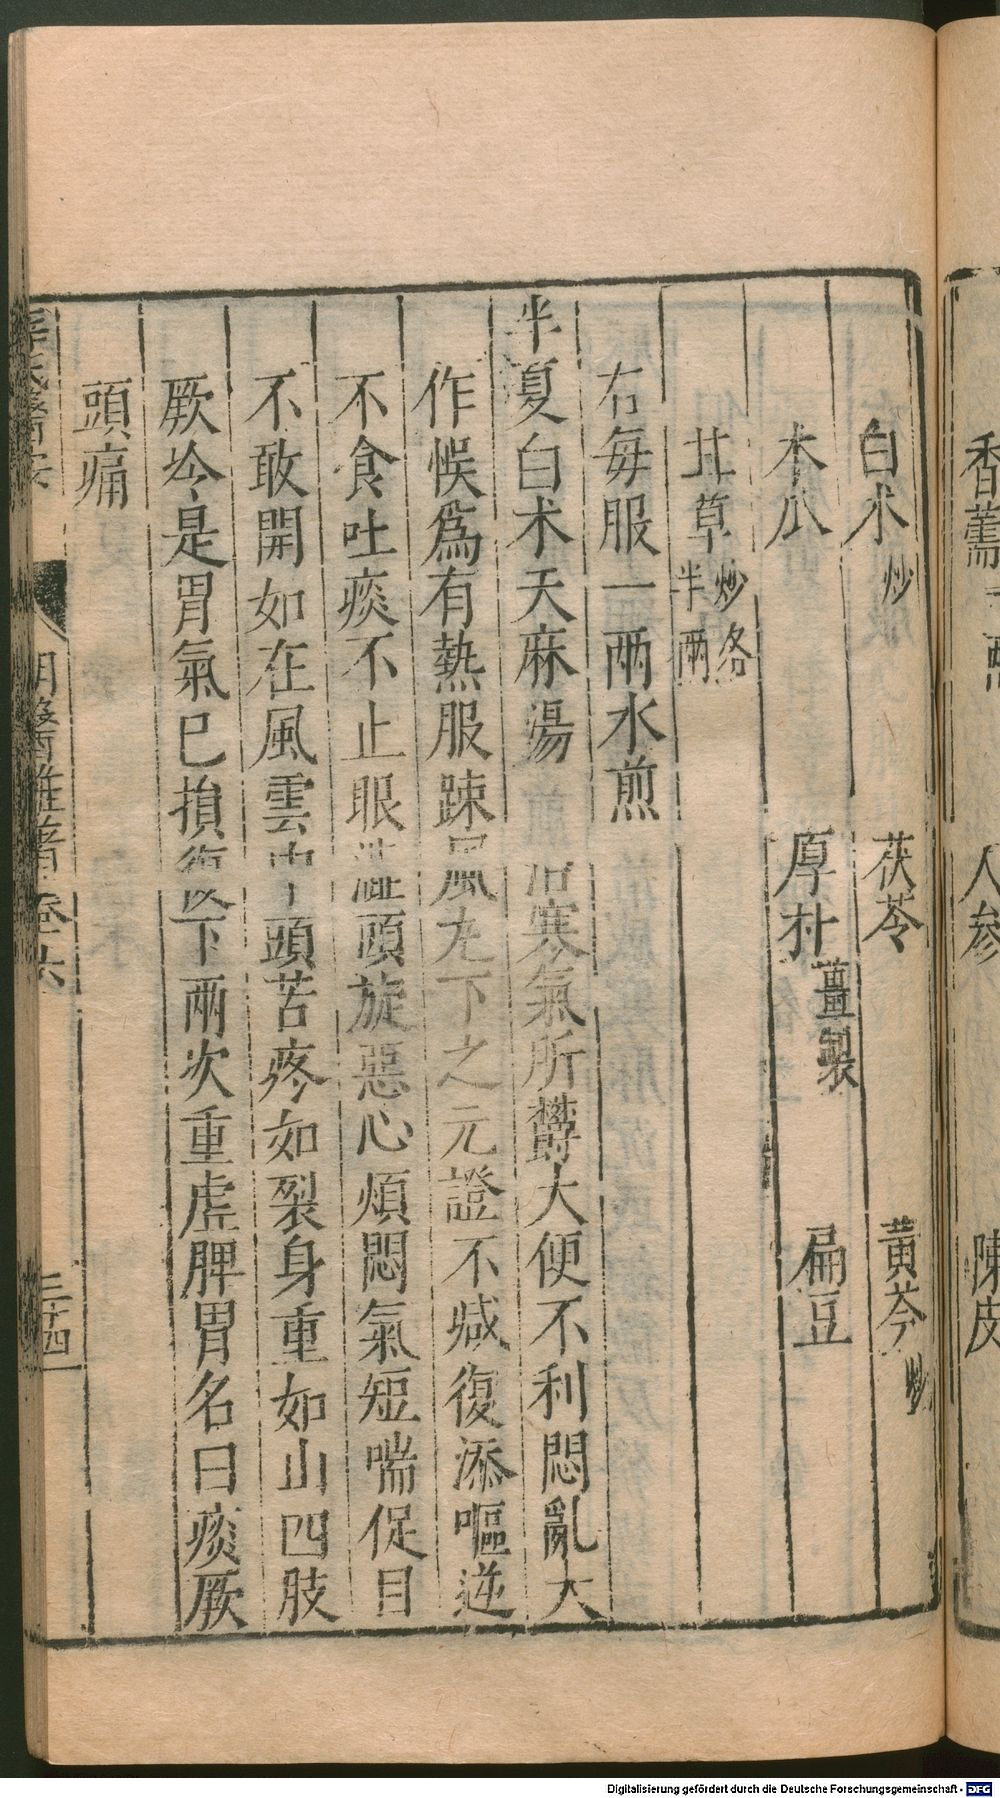 香薷一兩 人參 陳皮
白朮炒 茯苓 黃芩炒
木瓜 厚朴薑製 扁豆
甘草炒各半兩
右每服一兩水煎
半夏白朮天麻湯 治寒氣所鬱大便不利悶亂大
作悞爲有熱服疎風丸下之元證不减復添嘔逆
不食吐痰不止眼澁頭旋惡心煩悶氣短喘促目
不敢開如在風雲中頭苦疼如裂身重如山四肢
厥冷是胃氣已損復下兩次重虛脾胃名曰痰厥
頭痛
明醫雜著卷六
三十四
Digitalisierung gefördert durch die Deutsche Forschungsgemeinschaft - DFG